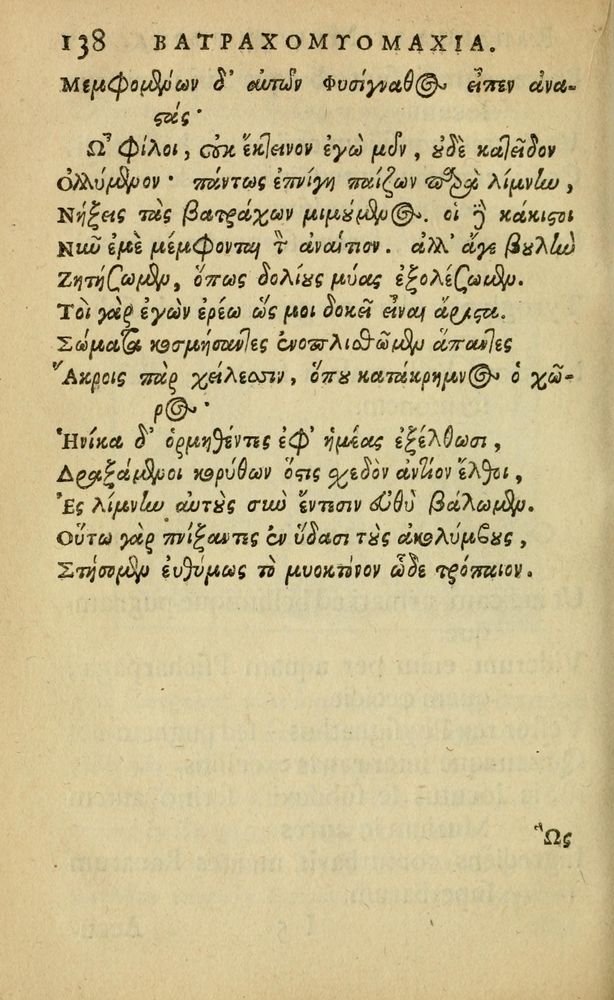 138 ΒΑΤΡΑΧΟΜΥΟΜΑΧΙΑ.
Μεμφομένων δ' αὐτῶν Φυσίγναθος εἶπεν ἀνα-
στάς·
Ὦ Φίλοι, οὐκ ἔκτεινον ἐγὼ μῦν, οὐδὲ κατεῖδον
Ὀλλύμενον· πάντως ἐπνίγη παίζων παρὰ λίμνην,
Νήξεις τὰς βατράχων μιμούμενος. οἱ δὲ κάκιστοι
Νῦν ἐμὲ μέμφονται τὸν ἀναίτιον. ἀλλ' ἄγε βουλὴν
Ζητήσωμεν, ὅπως δολίους μύας ἐξολέσωμεν.
Τοὶ γὰρ ἐγὼν ἐρέω ὥς μοι δοκεῖ εἶναι ἄριστα.
Σώματα κοσμήσαντες ἐνοπλισθῶμεν ἅπαντες
Ἄκροις πὰρ χείλεσιν, ὅπου κατάκρημνος ὁ χῶ-
ρος·
Ἡνίκα δ' ὁρμηθέντες ἐφ' ἡμέας ἐξέλθωσι,
Δραξάμενοι κορύθων ὅστις σχεδὸν ἀντίον ἔλθοι,
Ἐς λίμνην αὐτοὺς σὺν ἔντεσιν εὐθὺ βάλωμεν.
Οὕτω γὰρ πνίξαντες ἐν ὕδασι τοὺς ἀκολύμβους,
Στήσομεν εὐθύμως τὸ μυοκτόνον ὧδε τρόπαιον.
Ὣς